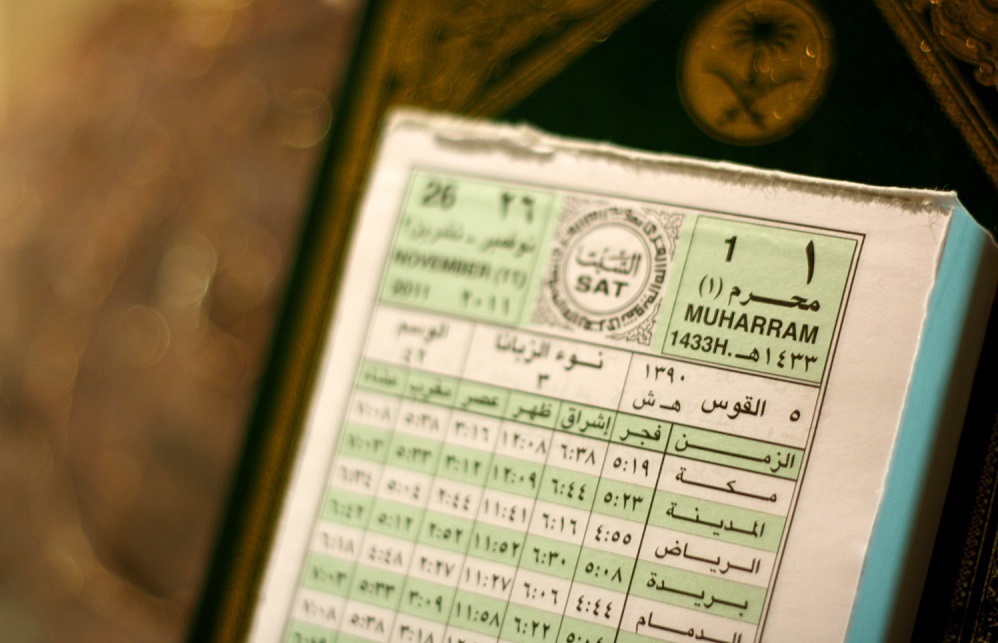 26 ٢٦
نوفمبر - تشرين٢
NOVEMBER (١١)
2011 ٢٠١١
السَّبْت
SAT
1 ١
محـرم (١)
MUHARRAM
1433H. ١٤٣٣هـ
الوسم
٤٢
نـوء الزبانا
٣
١٣٩٠
٥ القوس هـ ش
الزمـن فجر إشراق ظهر عصر مغرب عشاء
مـكـة ٥:١٩ ٦:٣٨ ١٢:٠٨ ٣:١٦ ٥:٣٨ ٧:٠٨
المدينـة ٥:٢٣ ٦:٤٤ ١٢:٠٩ ٣:١٢ ٥:٣٣ ٧:٠٣
الريـاض ٤:٥٥ ٦:١٦ ١١:٤١ ٢:٤٤ ٥:٠٤ ٦:٣٤
بـريـدة ٥:٠٨ ٦:٣٠ ١١:٥٢ ٢:٥٢ ٥:١٢ ٦:٤٢
الـدمـام ٤:٤٤ ٦:٠٦ ١١:٢٧ ٢:٢٧ ٤:٤٨ ٦:١٨
٦:٢٢ ١١:٥٨ ٣:٠٩ ٥:٣٣ ٧:٠٣
٣:١٨ ٥:٣٨ ٧:٠٨